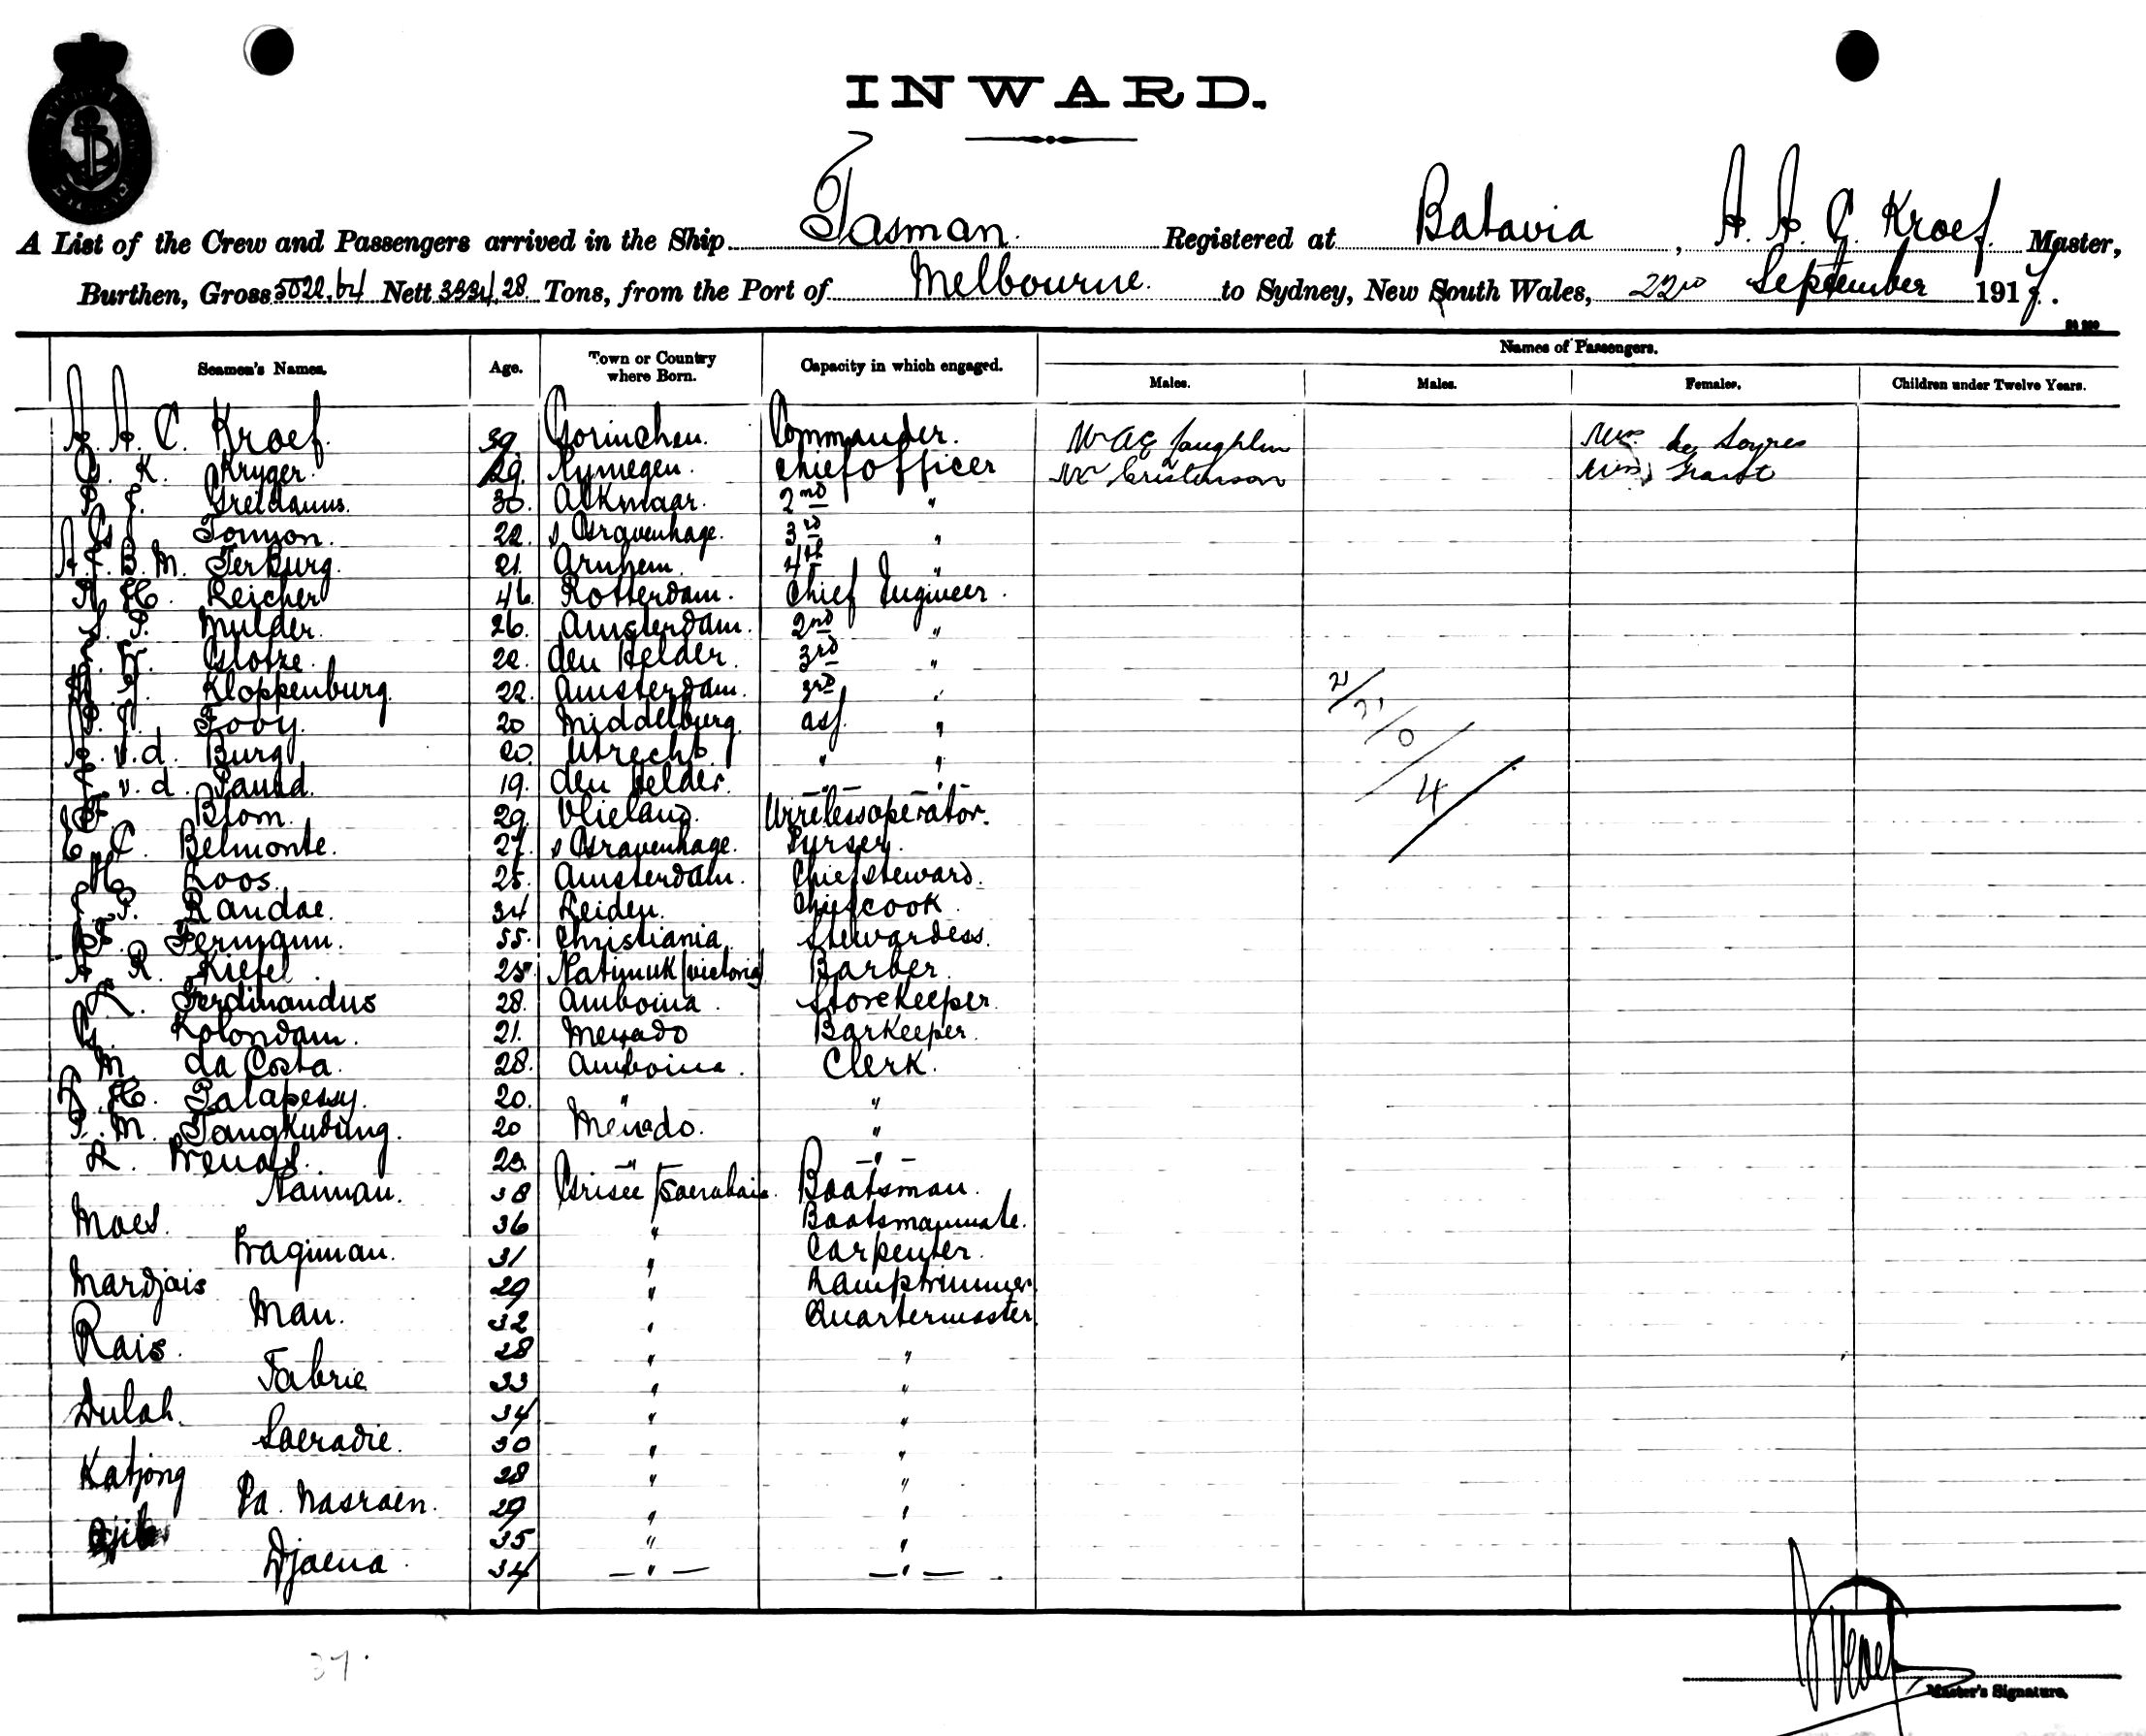 INWARD.
A List of the Crew and Passengers arrived in the Ship Tasman. Registered at Batavia, A. A. C. Kroef. Master,
Burthen, Gross 5022.64 Nett 3334.28 Tons, from the Port of Melbourne. to Sydney, New South Wales, 22nd September 1917.
Seamen's Names. Age. Town or Country where Born. Capacity in which engaged. Names of Passengers.
Males. Males. Females. Children under Twelve Years.
A. A. C. Kroef. 39. Gorinchem. Commander. Mr Mrs
G. K. Kryger. 29. Nymegen. Chief officer Mr Cristenson Miss Grant
P. J. Greidanus. 30. Alkmaar. 2nd "
Tomson. 22. s Gravenhage. 3rd "
A. F. B. M. Terburg. 21. Arnhem. 4th "
A. H. Reicher 46. Rotterdam. Chief Engineer.
S. P. Mulder. 26. Amsterdam. 2nd "
W. Glotze. 22. den Helder. 3rd "
Kloppenburg. 22. Amsterdam. 3rd "
P. J. Fooy. 20 Middelburg. ass. "
v.d. Burg 20. Utrecht. " "
J. v.d. 19. den Helder. " "
F. Blom. 29. Vlieland. Wirelessoperator.
E. C. Belmonte. 27. s Gravenhage. Purser.
H. Koos. 25. Amsterdam. Chiefsteward.
J. P. Randae. 34 Leiden. Chiefcook
Fermann. 55. Christiania. Stewardess.
A. R. Kiefel. 25 Natimuk (victoria) Barber.
L. Ferdinandus 28. Amboina. Storekeeper.
G. Kolondam. 21. Menado Barkeeper.
M. da Costa. 28. Amboina. Clerk.
L. H. Palapessy. 20. " "
P. M. Tangkudung. 20 Menado. "
R. 23. " "
Naiman. 38 Grisee / Soerabaia. Bootsman.
Moes. 36 " Bootsmanmate.
Pragiman. 31 " Carpenter.
Mardjais 29 " Lamptrimmer
Man. 32 " Quartermaster.
Rais. 28 " "
Fabrie 33 " "
Dulah. 34 " "
Saeradie. 30 " "
Katjong 28 " "
Pa. Nasraen. 29 " "
35 " "
Djaena. 34 " "
2/
0
4
37.
Master's Signature.